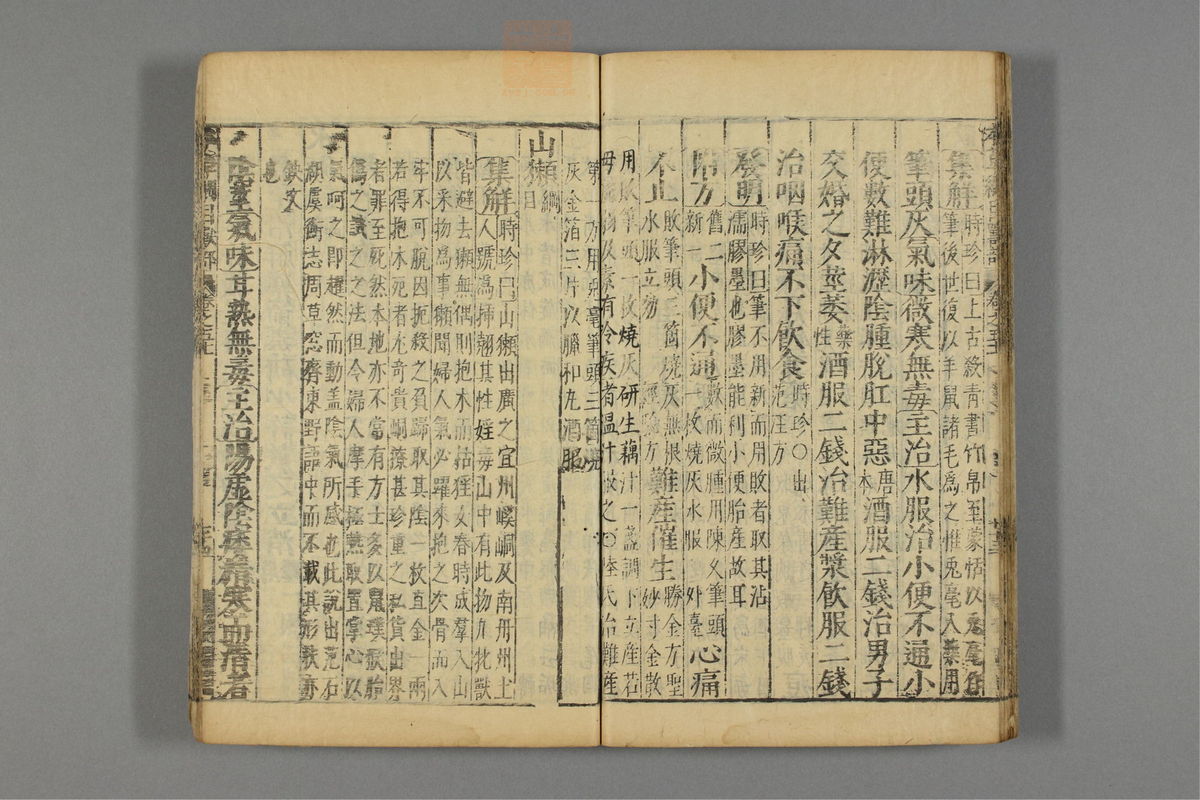 集解時珍曰上古殺青書竹帛至蒙恬以兔毫作
筆後世復以羊鼠諸毛爲之惟兔毫入藥用
筆頭灰氣味微寒無毒主治水服治小便不通小
便數難淋瀝陰腫脫肛中惡唐本酒服二錢治男子
交婚之夕莖萎藥性酒服二錢治難產漿飲服二錢
治咽喉痛不下飲食時珍○出范汪方
發明時珍曰筆不用新而用敗者取其沾
濡膠墨也膠墨能利小便胎產故耳
附方舊二新一小便不通數而微腫用陳久筆頭
一枚燒灰水服外臺心痛
不止敗筆頭三箇燒灰無根
水服立効經驗方難產催生勝金方聖
妙寸金散
用敗筆頭一枚燒灰研生藕汁一盞調下立產若
母及素有冷疾者溫汁服之○陸氏治難產
第一方用兔毫筆頭三箇燒
灰金箔三片以臘和丸酒服
山獺綱目
集解時珍曰山獺出廣之宜州嵠峒及南丹州土
人號爲插翹其性婬毒山中有此物凡牝獸
皆避去獺無偶則抱木而枯猺女春時成羣入山
以采物爲事獺聞婦人氣必躍來抱之次骨而入
牢不可脫因扼殺之負歸取其陰一枚直金一兩
若得抱木死者尤奇貴峒獠甚珍重之私貨出界
者罪至死然本地亦不當有方士多以鼠璞猴胎
僞之試之之法但令婦人摩手極熱取置掌心以
氣呵之即趯然而動蓋陰氣所感也此說出范石
湖虞衡志周草窓齊東野語中而不載其形狀亦
缺文
也
陰莖氣味甘熱無毒主治陽虛陰痿精寒而清者